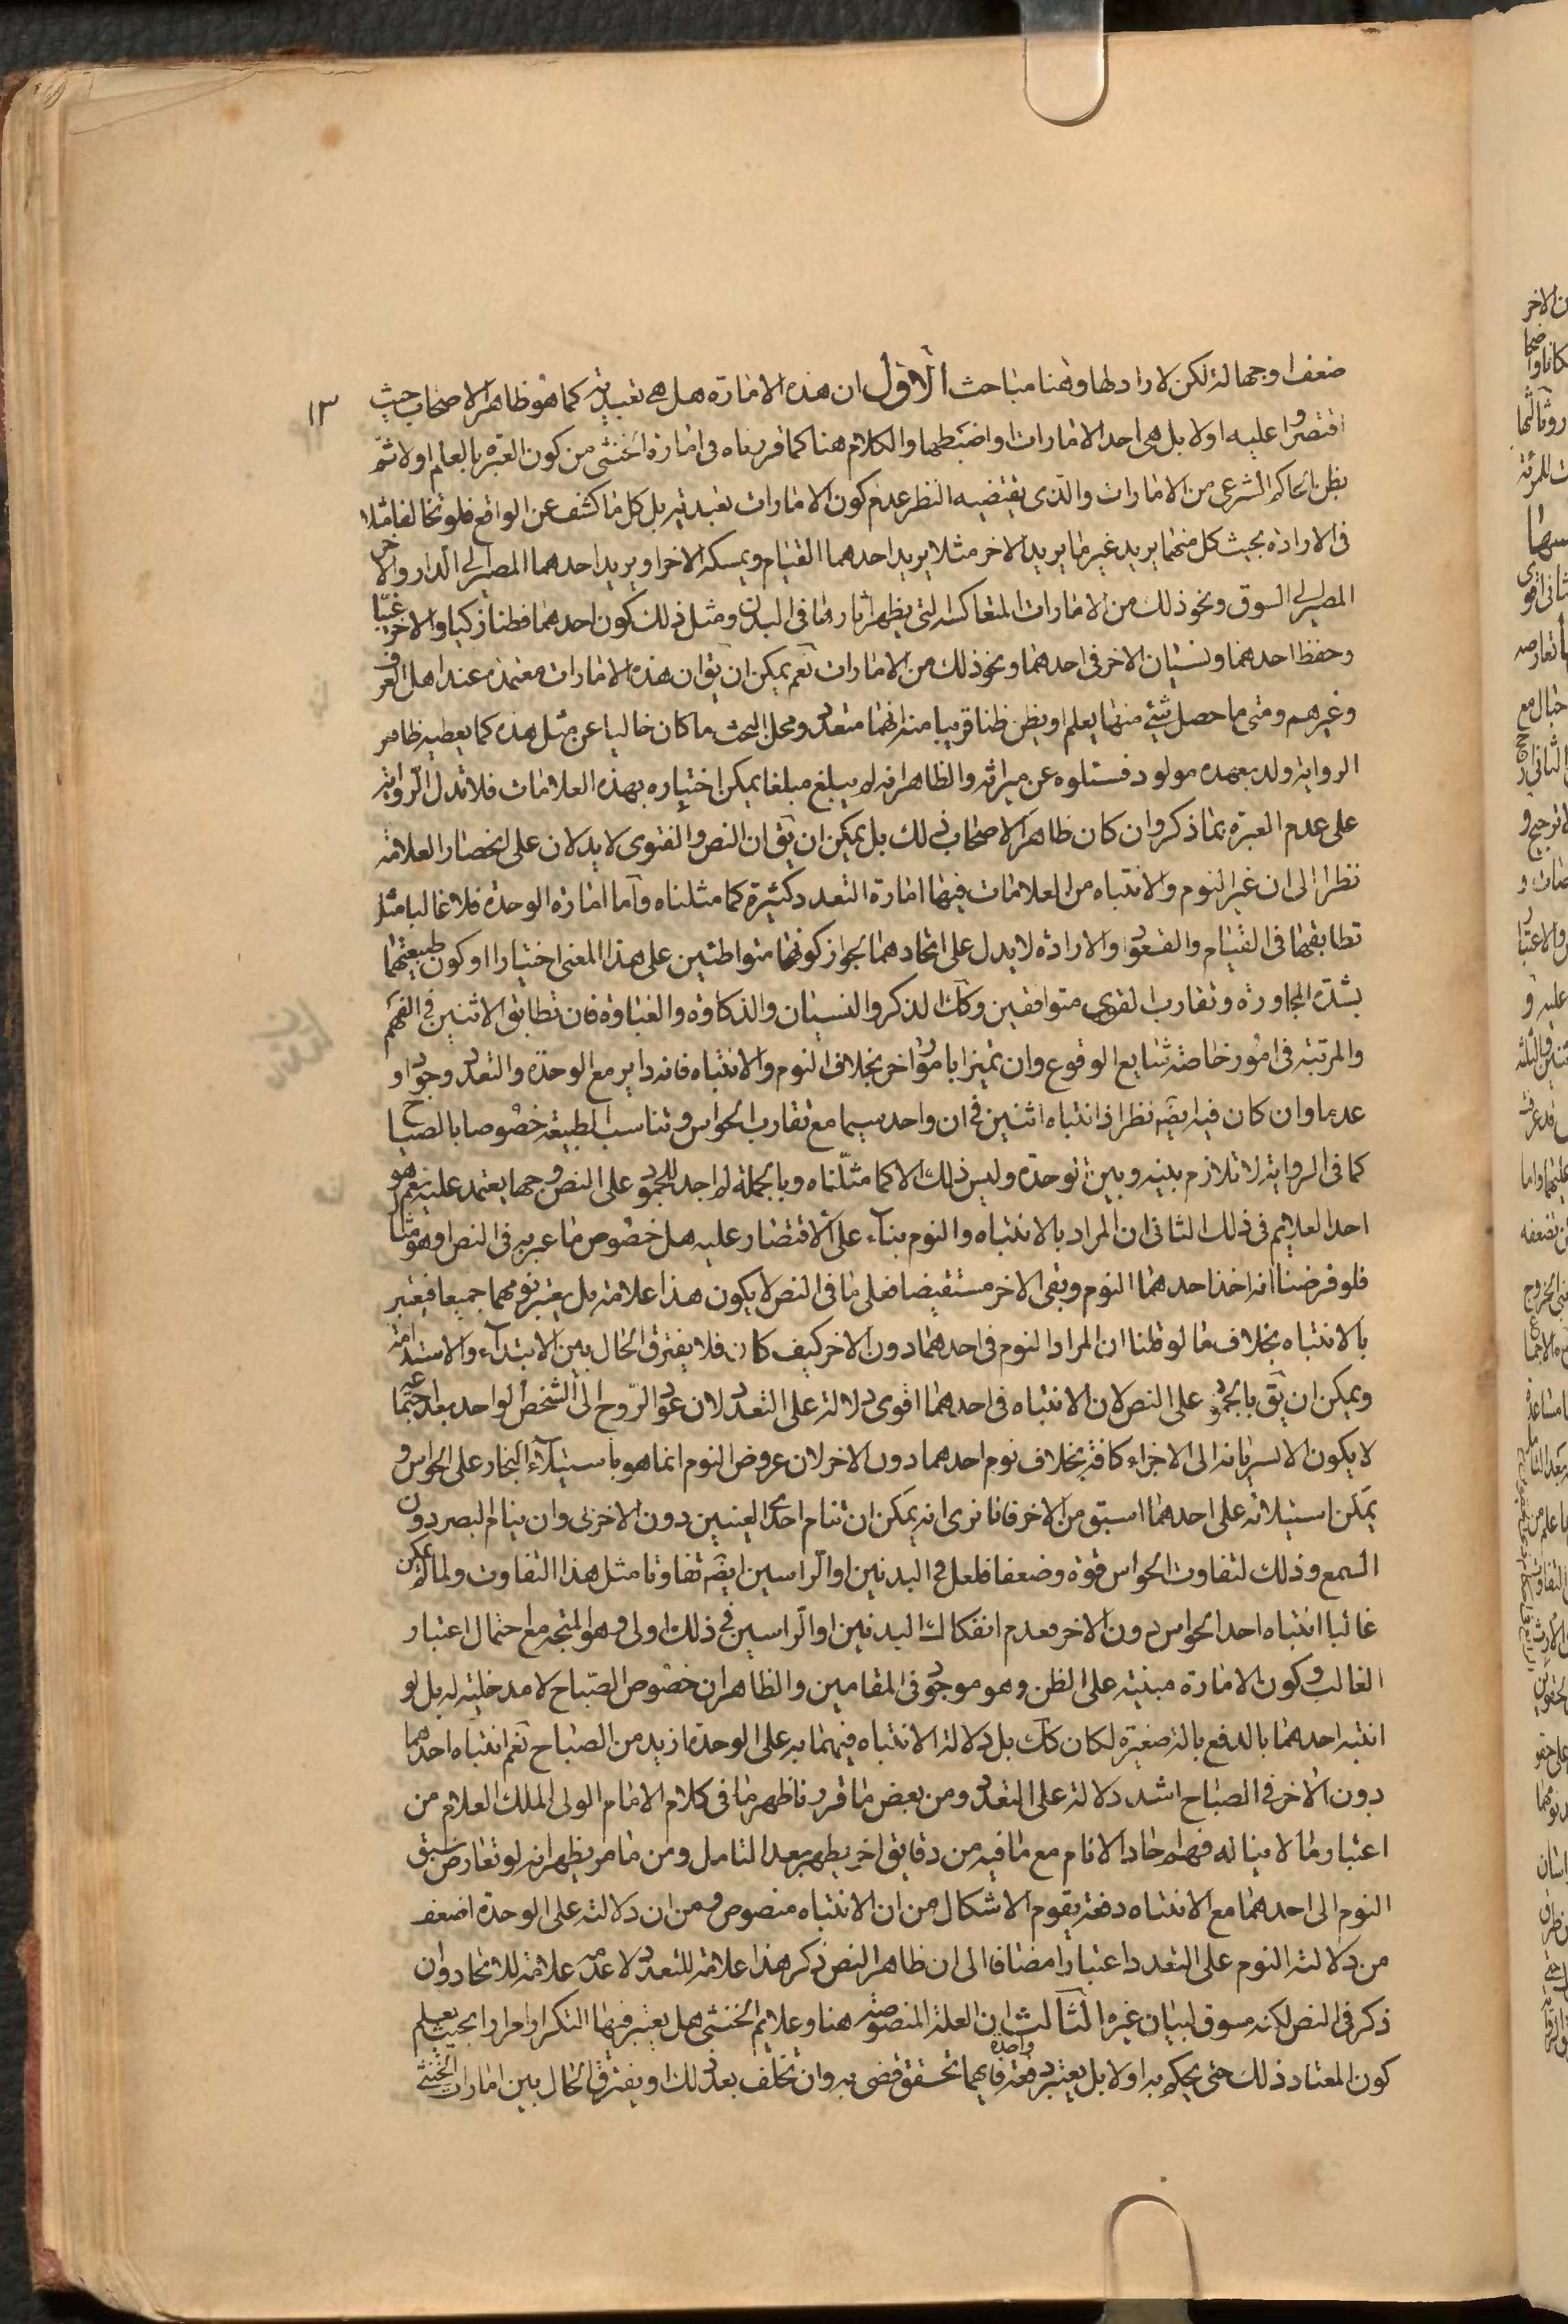 ضعفا وجهالة لكن لا راد لها وهنا مباحث الاول ان هذه الامارة هل هى تعبدية كما هو ظاهر الاصحاب حيث
١٣
اقتصروا عليه اولا بل هى احد الامارات او اضبطها والكلام هنا كما قررناه فى امارة الخنثى من كون العبرة بالعلم اولا ثم
بظن الحاكم الشرعى من الامارات والذى يقتضيه النظر عدم كون الامارات تعبدية بل كل ما كشف عن الواقع فلو تخالفا مثلا
فى الارادة بحيث كل منهما يريد غير ما يريد الاخر مثلا يريد احدهما القيام ويمسكه الاخر او يريد احدهما المصير الى الدار والاخر
المصير الى السوق ونحو ذلك من الامارات المتعاكسة التى يظهر اثارها فى البدن ومثل ذلك كون احدهما فطنا زكيا والاخر غبيا
وحفظ احدهما ونسيان الاخر فى احدهما ونحو ذلك من الامارات نعم يمكن ان يق ان هذه الامارات معتمدة عند اهل العرف
وغيرهم ومتى ما حصل شئ منها يعلم او يظن ظنا قريبا منه انهما متعدد ومحل البحث ما كان خاليا عن مثل هذه كما يعطيه ظاهر
الرواية ولد بعهده مولود فسئلوه عن ميراثه والظاهر انه لم يبلغ مبلغا يمكن اختباره بهذه العلامات فلا تدل الرواية
على عدم العبرة بما ذكر وان كان ظاهر الاصحاب ذلك بل يمكن ان يق ان النص والفتوى لا يدلان على انحصار العلامة
نظرا الى ان غير النوم والانتباه من العلامات فيها امارة التعدد كثيرة كما مثلناه واما امارة الوحدة فلا غالبا مثلا
تطابقهما فى القيام والقعود والارادة لا يدل على اتحادهما لجواز كونهما متواطئين على هذا المعنى اختيارا او كون طبيعتهما
بشدة المجاورة وتقارب القوى متوافقين وكك الذكر والنسيان والذكاوة والغباوة فان تطابق الاثنين فى الفهم
والمرتبة فى امور خاصة شايع الوقوع وان تميزا بامور اخر بخلاف النوم والانتباه فانه داير مع الوحدة والتعدد وجودا و
عدما وان كان فيه ايضه نظر اذ انتباه اثنين فى ان واحد سيما مع تقارب الحواس وتناسب الطبيعة خصوصا بالصياح
كما فى الرواية لا تلازم بينه وبين الوحدة وليس ذلك الا كما مثلناه وبالجملة لم اجد للجمود على النص وجها يعتمد عليه نعم هو
احد العلايم فى ذلك الثانى ان المراد بالانتباه والنوم بناء على الاقتصار عليه هل خصوص ما عبر به فى النص او هو مثال
فلو فرضنا انه اخذ احدهما النوم وبقى الاخر مستيقضا فعلى ما فى النص لا يكون هذا علامة بل يعتبر نومهما جميعا فيعتبر
بالانتباه بخلاف ما لو قلنا ان المراد النوم فى احدهما دون الاخر كيف كان فلا يفترق الحال بين الابتداء والاستدامة
ويمكن ان يق بالجمود على النص لان الانتباه فى احدهما اقوى دلالة على التعدد لان عود الروح الى الشخص الواحد بعد اجتماعه
لا يكون الا لسريانه الى الاجزاء كافة بخلاف نوم احدهما دون الاخر لان عروض النوم انما هو باستيلاء البخار على الحواس و
يمكن استيلائه على احدهما اسبق من الاخر فانا نرى انه يمكن ان تنام احدى العينين دون الاخرى وان ينام البصر دون
السمع وذلك لتفاوت الحواس قوة وضعفا فلعل فى البدنين او الراسين ايضه تفاوتا مثل هذا التفاوت ولما لم يمكن
غالبا انتباه احد الحواس دون الاخر فعدم انفكاك البدنين او الراسين فى ذلك اولى وهو المتجه مع احتمال اعتبار
الغالب وكون الامارة مبنية على الظن وهو موجود فى المقامين والظاهر ان خصوص الصباح لا مدخلية له بل لو
انتبه احدهما بالدفع بالة صغيرة لكان كك بل دلالة الانتباه فيهما به على الوحدة ازيد من الصباح نعم انتباه احدهما
دون الاخر فى الصباح اشد دلالة على التعدد ومن بعض ما قررنا ظهر ما فى كلام الامام الولى الملك العلام من
اعتبار ما لا يناله فهم احاد الانام مع ما فيه من دقايق اخر يظهر بعد التامل ومن ما مر يظهر انه لو تعارض سبق
النوم الى احدهما مع الانتباه دفعة يقوم الاشكال من ان الانتباه منصوص ومن ان دلالته على الوحدة اضعف
من دلالة النوم على التعدد اعتبارا مضافا الى ان ظاهر النص ذكر هذا علامة للتعدد لا عدمه علامة للاتحاد وان
ذكر فى النص لكنه مسوق لبيان غيره الثالث ان العلة المنصوصة هنا وعلايم الخنثى هل يعتبر فيها التكرار مرارا بحيث يعلم
كون المعتاد ذلك حتى يحكم به اولا بل يعتبر دفعة واحدة فايهما تحقق قضى به وان تخلف بعد ذلك او يفترق الحال بين امارات الخنثى